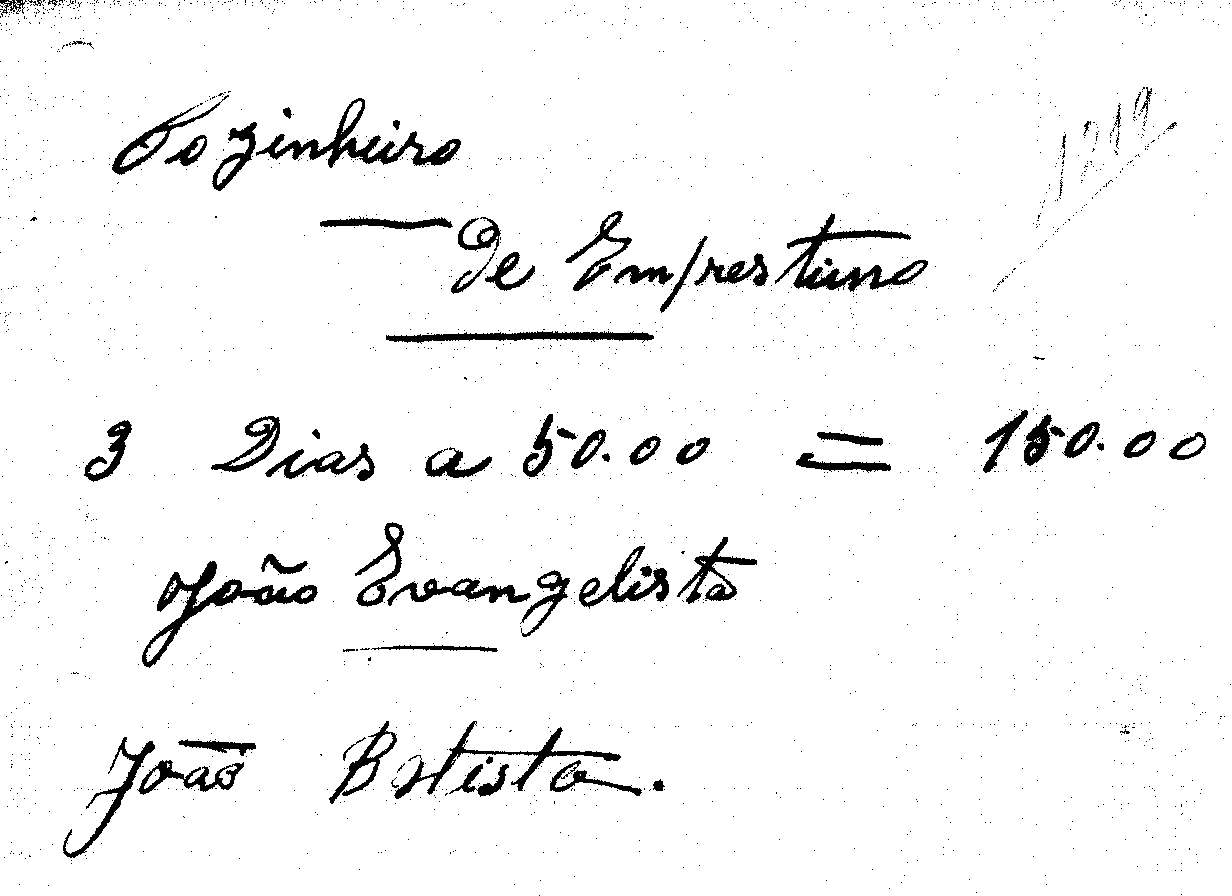 Cozinheiro
1219
De Emprestimo
3 Dias a 50.00 = 150.00
João Evangelista
João Batista.